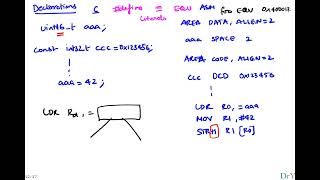 Declarations C #define ≡ EQU ASM foo EQU 0x40001
Literals
uint16_t aaa;
const int32t ccc = 0x123456;
⋮
aaa = 42;
LDR Rd, =
AREA DATA, ALIGN=2
aaa SPACE 2
AREA CODE, ALIGN=2
CCC DCD 0x123456
⋮
LDR R0, =aaa
MOV R1, #42
STRH R1 [R0]
DrY